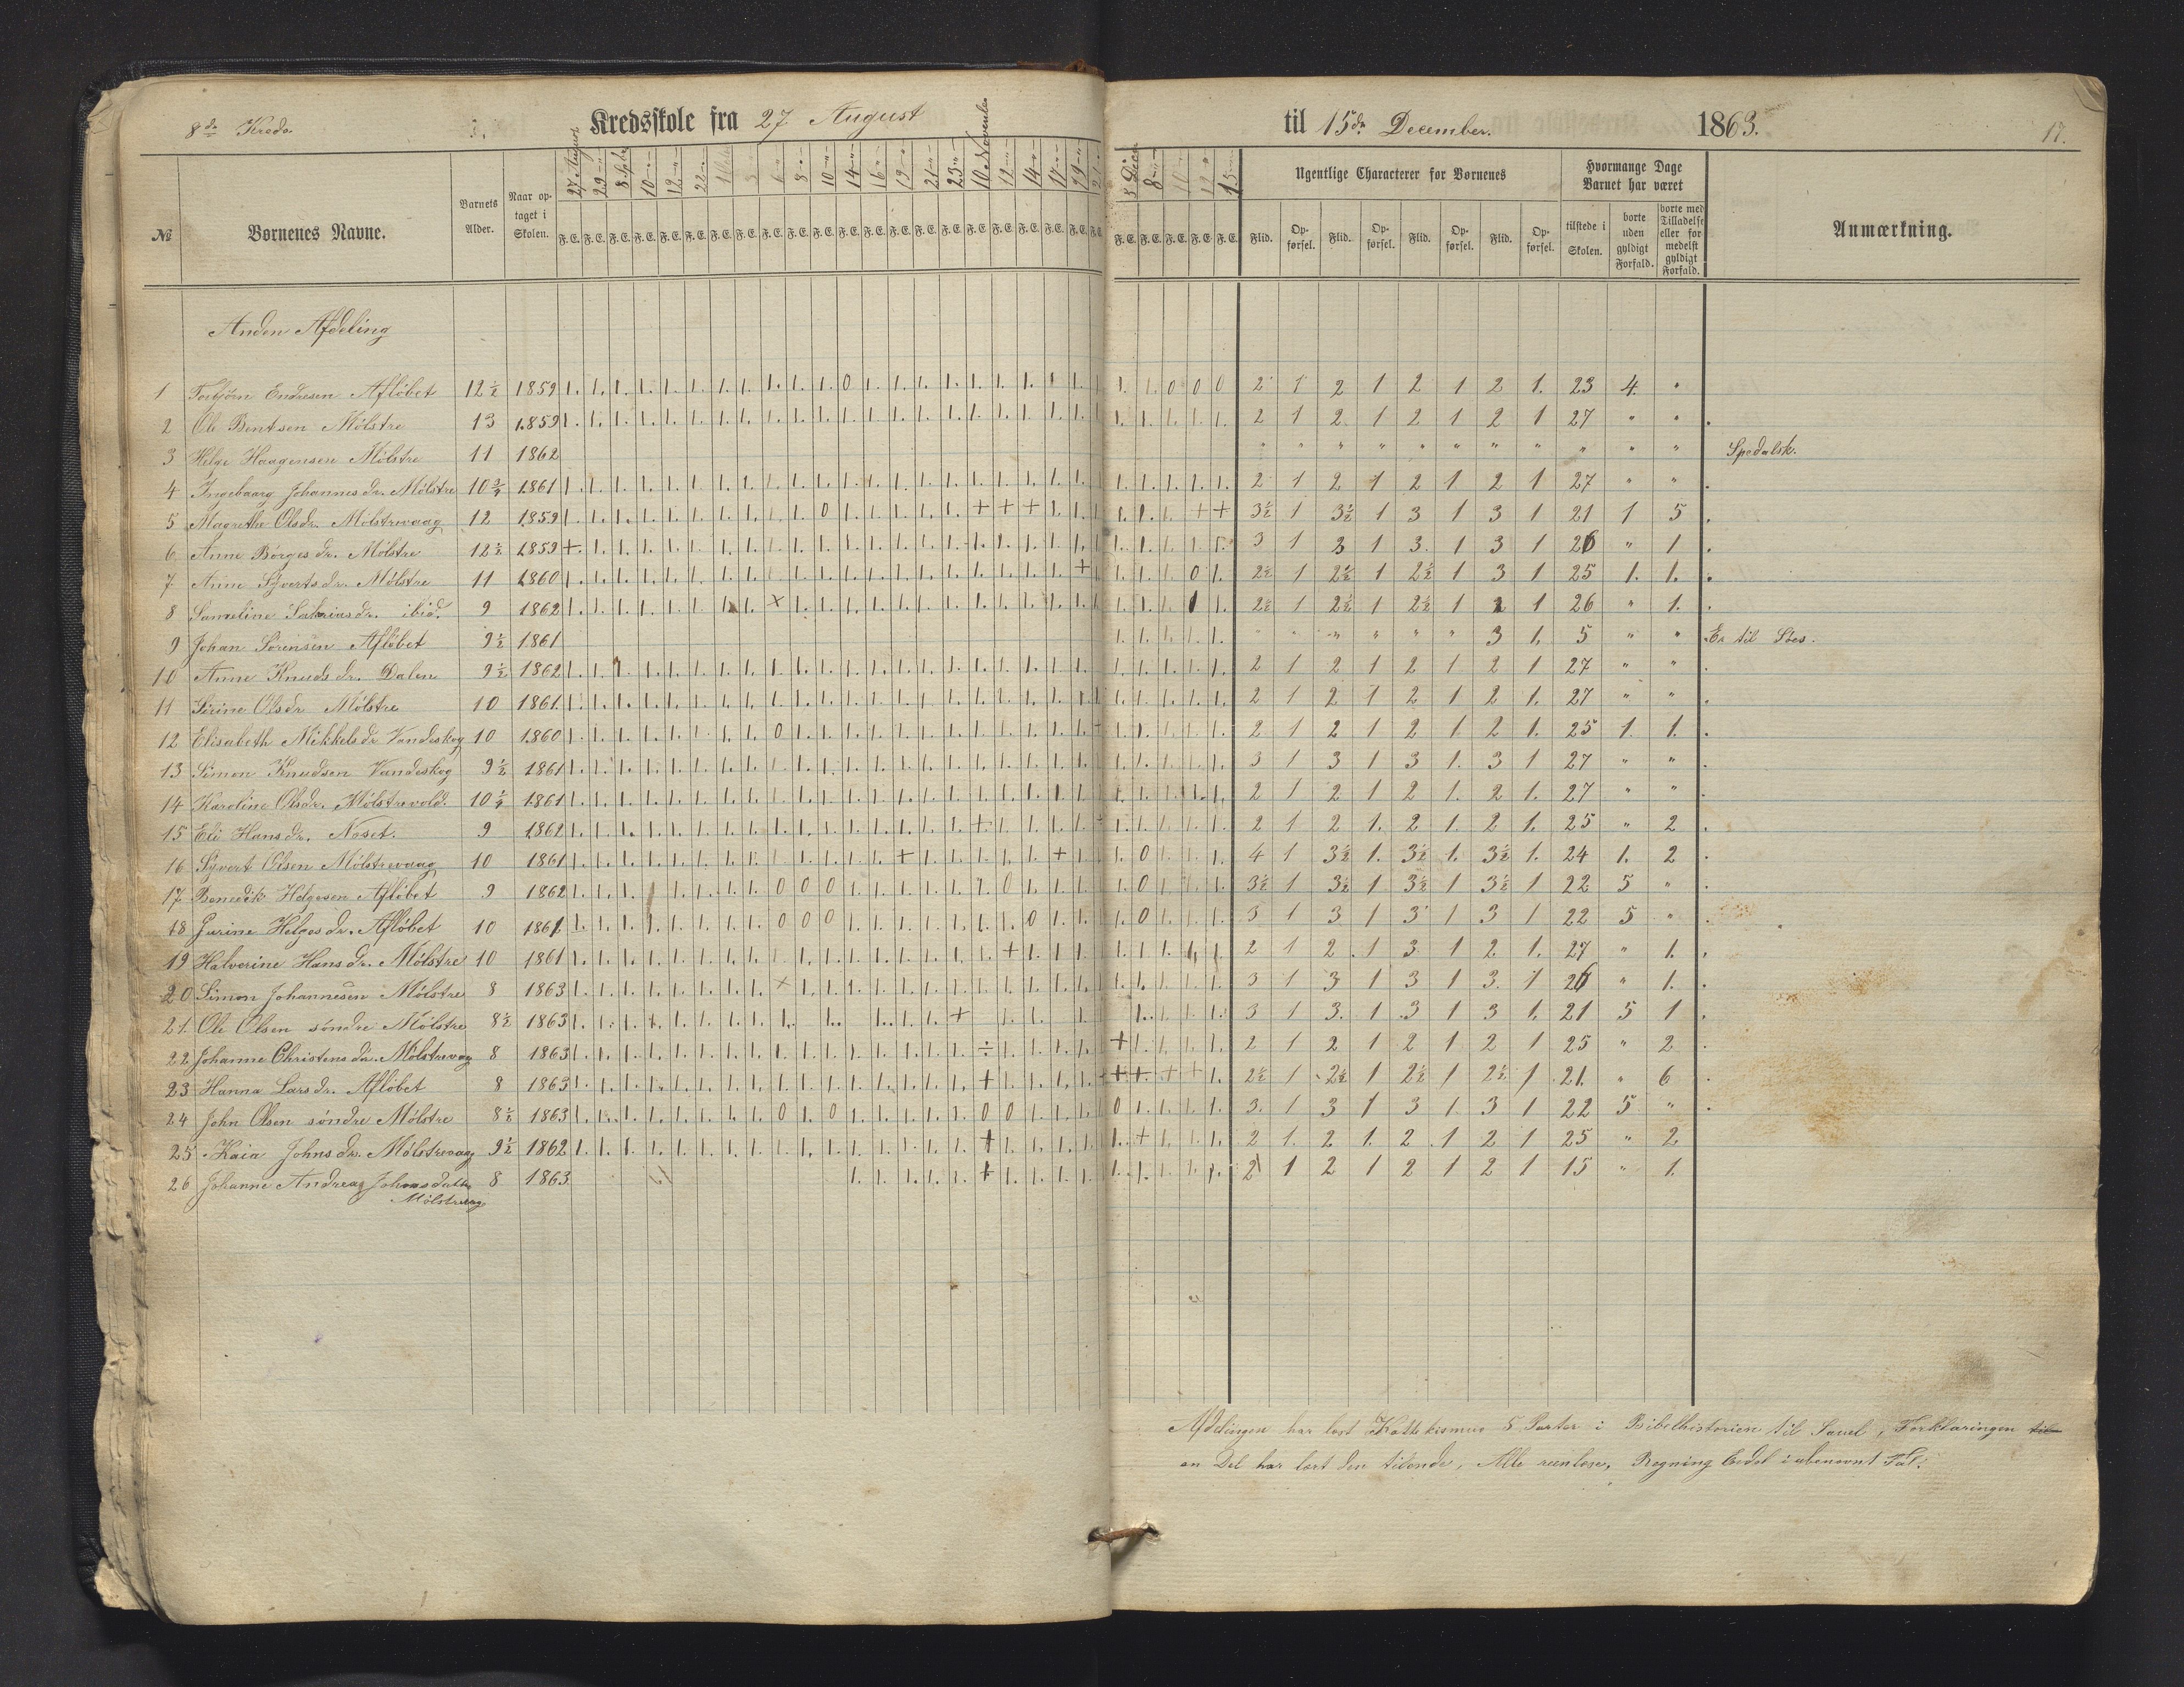 8de Kreds.
Kredsskole fra 27 August til 15de December. 1863. 17.
№ Børnenes Navne. Barnets Alder. Naar optaget i Skolen. 27 August 29 8 10 12 22 8 10 14 16 19 21 23 10 November 12 14 17 19 21 8 12 15 Ugentlige Characterer for Børnenes Hvormange Dage Barnet har været Anmærkning.
F.E. F.E. F.E. F.E. F.E. F.E. F.E. F.E. F.E. F.E. F.E. F.E. F.E. F.E. F.E. F.E. F.E. F.E. F.E. F.E. F.E. F.E. F.E. F.E. F.E. F.E. Flid. Opførsel. Flid. Opførsel. Flid. Opførsel. Flid. Opførsel. tilstede i Skolen. borte uden gyldigt Forfald. borte med Tilladelse eller formedelst gyldigt Forfald.
Anden Afdeling
1 Torbjörn Endresen Aflöbet 12½ 1859 2 1 2 1 2 1 2 1. 23 4. "
2 Ole Bentsen Mölstre 13 1859 2 1 2 1 2 1 2 1 27 " "
3 Helge Haagensen Mölstre 11 1862 " " " " " " " " " " " Spedalsk.
4 Ingebaarg Johannesdr. Mölstre 10¾ 1861 2 1 2 1 2 1 2 1 27 " "
5 Magrethe Olsdr. Mölstrevaag 12 1859 3½ 1 3½ 1 3 1 3 1 21 1 5
6 Anne Börgesdr. Mölstre 12½ 1859 3 1 3 1 3. 1 3 1 26 " 1
7 Anne Syvertsdr. Mölstre 11 1860 2½ 1 2½ 1 2½ 1 3 1 25 1. 1.
8 Sameline Sakriasdr. ibid. 9 1862 2½ 1 2½ 1 2½ 1 2 1 26 " 1.
9 Johan Sörensen Aflöbet 9½ 1861 " " " " " " 3 1. 5 " " Er til Söes.
10 Anne Knudsdr. Dalen 9½ 1862 2 1 2 1 2 1 2 1 27 " "
11 Sirine Olsdr Mölstre 10 1861. 2 1 2 1 2 1 2 1. 27 " "
12 Elisabeth Mikkelsdr Vandeskog 10 1860 2 1 2 1 2 1 2 1. 25 1. 1.
13 Simon Knudsen Vandeskog 9½ 1861 3 1 3 1 3 1. 3 1 27 " "
14 Karoline Olsdr. Mölstrevold. 10½ 1861 2 1 2 1 2 1. 2 1. 27 " "
15 Eli Hansdr. Neset. 9 1862 2 1 2 1. 2 1. 2 1. 25 " 2
16 Syvert Olsen Mölstrevaag 10 1861 4 1 3½ 1. 3½ 1. 3½ 1. 24 1. 2
17 Benedik Helgesen Aflöbet 9 1862 3½ 1 3½ 1 3½ 1 3½ 1 22 5 "
18 Jurine Helgesdr. Aflöbet 10 1861 3 1 3 1 3 1 3 1 22 5 "
19 Halverine Hansdr. Mölstre 10 1861 2 1 2 1 3 1 2. 1. 27 " 1.
20 Simon Johannesen Mölstre 8 1863 3 1 3 1 3 1 3. 1 26 " 1.
21. Ole Olsen söndre Mölstre 8½ 1863 3 1 3. 1 3 1 3 1. 21 5 1
22 Johanne Christensdr. Mölstrevag 8 1863 2 1 2 1 2 1 2 1 25 " 2
23 Hanna Larsdr. Aflöbet 8 1863 2½ 1 2½ 1 2½ 1 2½ 1 21. " 6
24 John Olsen söndre Mölstre 8½ 1863 3. 1 3 1 3 1. 3 1 22 5 "
25 Kaia Johnsdr. Mölstrevaag 9½ 1862 2 1. 2 1. 2 1 2 1 25 " 2
26 Johanne Andrea Johnsdatter 8 1863 2 1 2 1 2 1 2 1 15 " 1.
Mölstrevag
Afdelingen har læst Kattekismus 5 Parter i Bibelhistorien til Sauel, Forklaringen til
en Del har læst den tilende, Alle reenlæse, Regning Endel i ubenevnt Tal.